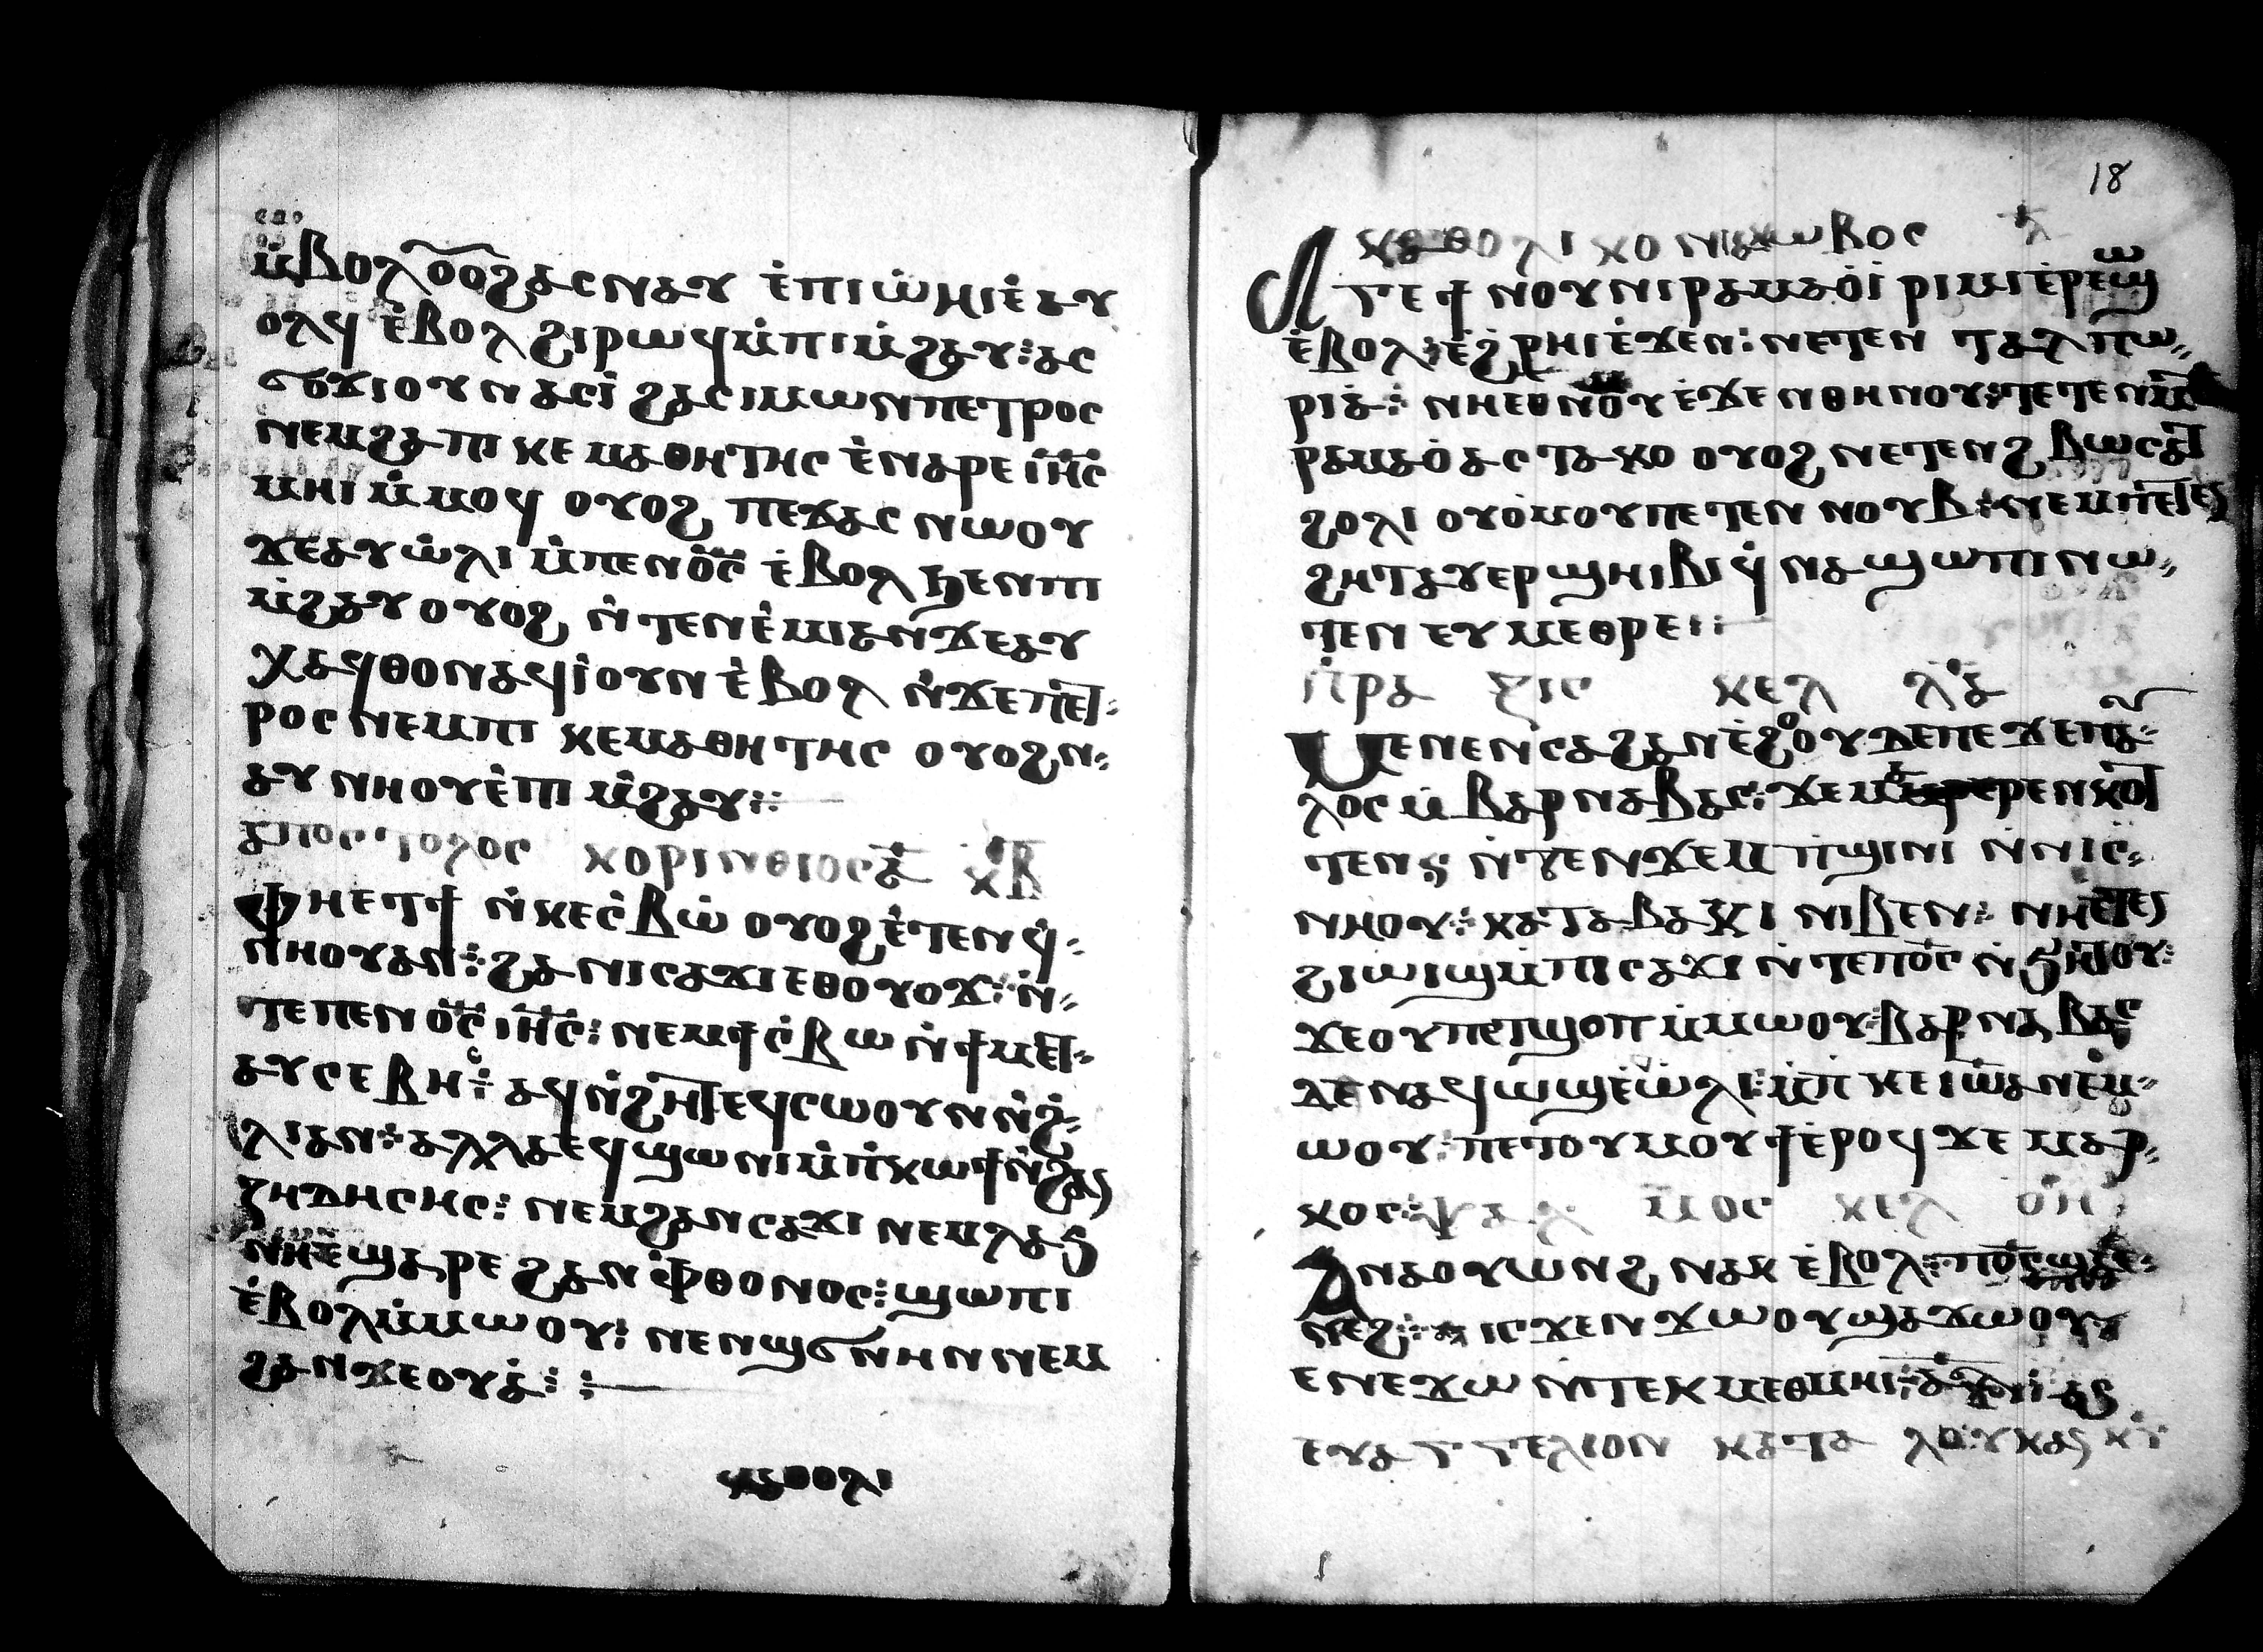 ⲙ̀ⲃⲟⲗ ⲟⲟϩ ⲁⲥⲛⲁⲩ ⲉ̀ⲡⲓⲱ̀ⲛⲓ ⲉ̀ⲁⲩ
ⲟⲗϥ ⲉ̀ⲃⲟⲗ ϩⲓⲣⲱϥ ⲙ̀ⲡⲓⲙ̀ϩⲁⲩ⁝ ⲁⲥ
ϭⲟϫⲓ ⲟⲩⲛ ⲁⲥⲓ̀ ϩⲁ ⲥⲓⲙⲱⲛ ⲡⲉⲧⲣⲟⲥ
ⲛⲉⲙ ϩⲁ ⲡⲓ ⲕⲉ ⲙⲁⲑⲏⲧⲏⲥ ⲉ̀ⲛⲁⲣⲉ ⲓⲏ̅ⲥ̅
ⲙⲏⲓ ⲙ̀ⲙⲟϥ ⲟⲩⲟϩ ⲡⲉϫⲁⲥ ⲛⲱⲟⲩ
ϫⲉ ⲁⲩⲱ̀ⲗⲓ ⲙ̀ⲡⲉⲛⲟ̅ⲥ̅ ⲉ̀ⲃⲟⲗ ϧⲉⲛ ⲡⲓ
ⲙ̀ϩⲁⲩ ⲟⲩⲟϩ ⲛ̀ⲧⲉⲛⲉ̀ⲙⲓ ⲁⲛ ϫⲉ ⲁⲩ
ⲭⲁϥ ⲑⲟⲛ ⲁϥⲓ̀ ⲟⲩⲛ ⲉ̀ⲃⲟⲗ ⲛ̀ϫⲉ ⲡⲉⲧ⸗
ⲣⲟⲥ ⲛⲉⲙ ⲡⲓ ⲕⲉⲙⲁⲑⲏⲧⲏⲥ ⲟⲩⲟϩ ⲛ⸗
ⲁⲩⲛⲏⲟⲩ ⲉ̀ⲡⲓ ⲙ̀ϩⲁⲩ⁝
ⲁⲡⲟⲥⲧⲟⲗⲟⲥ ⲕⲟⲣⲓⲛⲑⲓⲟⲥ ⲁ̅ ⲕⲃ
ⲫⲏⲉⲧϯ ⲛ̀ⲕⲉⲥ̀ⲃⲱ̀ ⲟⲩⲟϩ ⲉ̀ⲧⲉⲛϥ̀⸗
ⲛⲏⲟⲩ ⲁⲛ⁝ ϩⲁ ⲛⲓⲥⲁϫⲓ ⲉⲑⲟⲩⲟϫ⁝ ⲛ̀⸗
ⲧⲉ ⲡⲉⲛⲟ̅ⲥ̅ ⲓⲏ̅ⲥ̅⁝ ⲛⲉⲙ ϯⲥ̀ⲃⲱ ⲛ̀ϯⲙⲉⲧ⸗
ⲁⲩⲥⲉⲃⲏⲥ⁝ ⲁϥⲛ̀ϩⲏⲧ ⲉϥⲥⲱⲟⲩⲛ ⲛ̀ϩ̀⸗
ⲗⲓ ⲁⲛ⁝ ⲁⲗⲗⲁ ⲉϥϣⲱⲛⲓ ⲙ̀ⲡ̀ⲕⲱϯ ⲛ̀ϩⲁⲛ
ⲍⲏⲇⲏⲥⲏⲥ⁝ ⲛⲉⲙ ϩⲁⲛⲥⲁϫⲓ ⲛⲉⲙ ⲗⲁϩ
ⲛⲏⲉ̀ϣⲁⲣⲉ ϩⲁⲛ ⲫ̀ⲑⲟⲛⲟⲥ⁝ ϣⲱⲡⲓ
ⲉ̀ⲃⲟⲗ ⲙ̀ⲙⲱⲟⲩ⁝ ⲛⲉⲙ ϣϭⲛⲏⲛ ⲛⲉⲙ
ϩⲁⲛϫⲉⲟⲩⲁ̀⁝
ⲕⲁⲑⲟⲗⲓ
18
ⲕⲁⲑⲟⲗⲓⲕⲟⲛ ⲓⲁⲕⲱⲃⲟⲥ ⲗ̅
ⲁⲅⲉ ϯⲛⲟⲩ ⲛⲓⲣⲁⲙⲁⲟ̀ⲓ̀ ⲣⲓⲙⲓ ⲉ̀ⲣⲉⲧⲉⲛⲱϣ
ⲉ̀ⲃⲟⲗ⁝ ⲉ̀ϩ̀ⲣⲏⲓ ⲉ̀ϫⲉⲛ⁝ ⲛⲉⲧⲉⲛ ⲧⲁⲗⲡⲱ⸗
ⲣⲓⲁ⁝ ⲛⲏⲉⲑⲛⲟⲩ ⲉ̀ϫⲉⲛ ⲑⲏⲛⲟⲩ⁝ ⲧⲉⲧⲉⲛⲙⲉⲧ
ⲣⲁⲙⲁⲟ̀ ⲁⲥⲧⲁⲕⲟ ⲟⲩⲟϩ ⲛⲉⲧⲉⲛϩⲃⲱⲥ ⲁⲧ
ϩⲟⲗⲓ ⲟⲩⲟ̀ⲙⲟⲩ ⲡⲉⲧⲉⲛ ⲛⲟⲩⲃ⁝ ⲛⲉⲙ ⲡⲉⲧⲉⲛ
ϩⲏⲧ ⲁⲩⲉⲣϣⲏⲓⲃⲓ ϥ̀ⲛⲁϣⲱⲡⲓ ⲛⲱ⸗
ⲧⲉⲛ ⲉⲩⲙⲉⲑⲣⲉ⁝
ⲡ̀ⲣⲁⲝⲓⲥ ⲕⲉⲗ ⲗⲁ
ⲙⲉⲛⲉⲛⲥⲁ ϩⲁⲛⲉ̀ϩⲟⲟⲩ ⲇⲉ ⲡⲉϫⲉ ⲡⲁⲩ⸗
ⲗⲟⲥ ⲙ̀ⲃⲁⲣⲛⲁⲃⲁⲥ⁝ ϫⲉ ⲙⲁⲣⲉⲛⲕⲟⲧ
ⲧⲉⲛ ⲛ̀ⲧⲉⲛϫⲉⲙ ⲡ̀ϣⲓⲛⲓ ⲛ̀ⲛⲓⲥ̀⸗
ⲛⲏⲟⲩ⁝ ⲕⲁⲧⲁ ⲃⲁⲕⲓ ⲛⲓⲃⲉⲛ⁝ ⲛⲏⲉⲧⲉⲛ
ϩⲓⲱⲓϣ ⲙ̀ⲡⲓⲥⲁϫⲓ ⲛ̀ⲧⲉ ⲡⲟ̅ⲥ̅ ⲛ̀ϧⲏⲧⲟⲩ⁝
ϫⲉ ⲟⲩⲡⲉⲧϣⲟⲡ ⲙ̀ⲙⲱⲟⲩ⁝ ⲃⲁⲣⲛⲁⲃⲁⲥ
ⲇⲉ ⲛⲁϥⲱϣ ⲉ̀ⲱ̀ⲗⲓ⁝ ⲙ̀ⲡ̀ⲕⲉ ⲓⲱⲁ ⲛⲉⲙ⸗
ⲱⲟⲩ⁝ ⲡⲉⲧⲟⲩⲙⲟⲩϯ ⲉ̀ⲣⲟϥ ϫⲉ ⲙⲁⲣ⸗
ⲕⲟⲥ⁝ ⲯⲁⲗⲙⲟⲥ ⲕⲉⲗ ⲟⲏ
ⲁⲛⲁⲟⲩⲱⲛϩ ⲛⲁⲕ ⲉ̀ⲃⲟⲗ⁝ ⲡⲟ̅ⲥ̅ ϣⲁ ⲉ⸗
ⲛⲉϩ⁝ ⲓⲥϫⲉⲛ ϫⲱⲟⲩ ϣⲁ ϫⲱⲟⲩ
ⲉⲛⲉϫⲱ ⲛ̀ⲧⲉⲕⲙⲉⲑⲙⲏⲓ⁝
ⲉⲩⲁⲅⲅⲉⲗⲓⲟⲛ ⲕⲁⲧⲁ ⲗⲟⲩⲕⲁⲛ